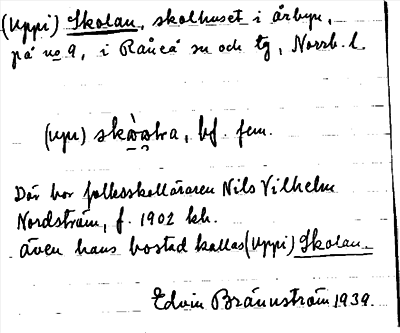 (Uppi) Skolan, skolhuset i Årbyn,
på no 9, i Råneå sn och tg, Norrb. l.
(upi) skòola, bf. fem.
Där bor folkskolläraren Nils Vilhelm
Nordström, f. 1902 kh.
Även hans bostad kallas (Uppi) Skolan.
Edvin Brännström 1939.